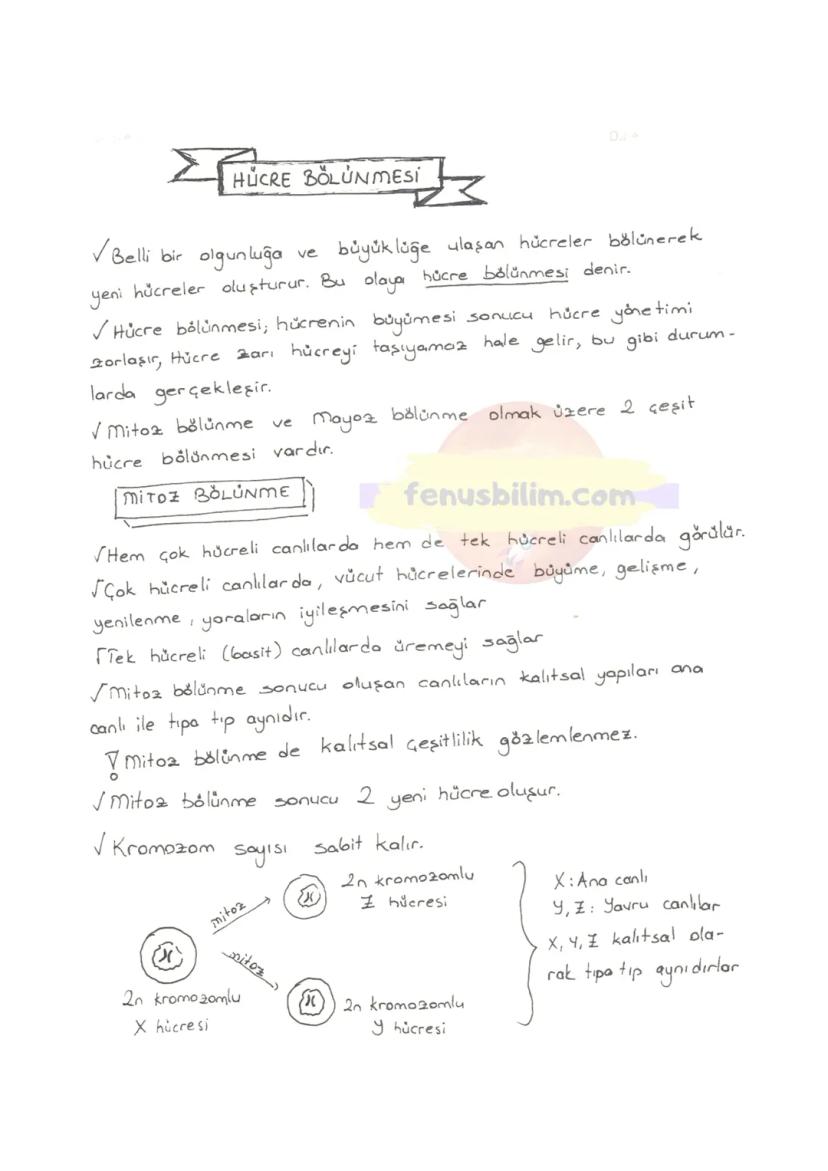 HÜCRE BÖLÜNMESİ
√ Belli bir olgunluğa ve büyüklüğe ulaşan hücreler bölünerek
yeni hücreler oluşturur. Bu olaya hücre bölünmesi denir.
√ Hücre bölünmesi; hücrenin büyümesi sonucu hücre yönetimi
zorlaşır, Hücre zarı hücreyi taşıyamaz hale gelir, bu gibi durum-
larda gerçekleşir.
√ Mitoz bölünme ve Mayoz bölünme olmak üzere 2 çeşit
hücre bölünmesi vardır.
fenusbilim.com
MİTOZ BÖLÜNME
√ Hem çok hücreli canlılarda hem de tek hücreli canlılarda görülür.
√ Çok hücreli canlılarda, vücut hücrelerinde büyüme, gelişme,
yenilenme, yaraların iyileşmesini sağlar
√ Tek hücreli (basit) canlılarda üremeyi sağlar
√ Mitoz bölünme sonucu oluşan canlıların kalıtsal yapıları ana
canlı ile tıpa tıp aynıdır.
! Mitoz bölünme de kalıtsal çeşitlilik gözlemlenmez.
√ Mitoz bölünme sonucu 2 yeni hücre oluşur.
√ Kromozom sayısı sabit kalır.
mitoz
mitoz
2n kromozomlu
X hücresi
2n kromozomlu
Z hücresi
2n kromozomlu
Y hücresi
X: Ana canlı
Y, Z: Yavru canlılar
X, Y, Z kalıtsal ola-
rak tıpa tıp aynıdırlar